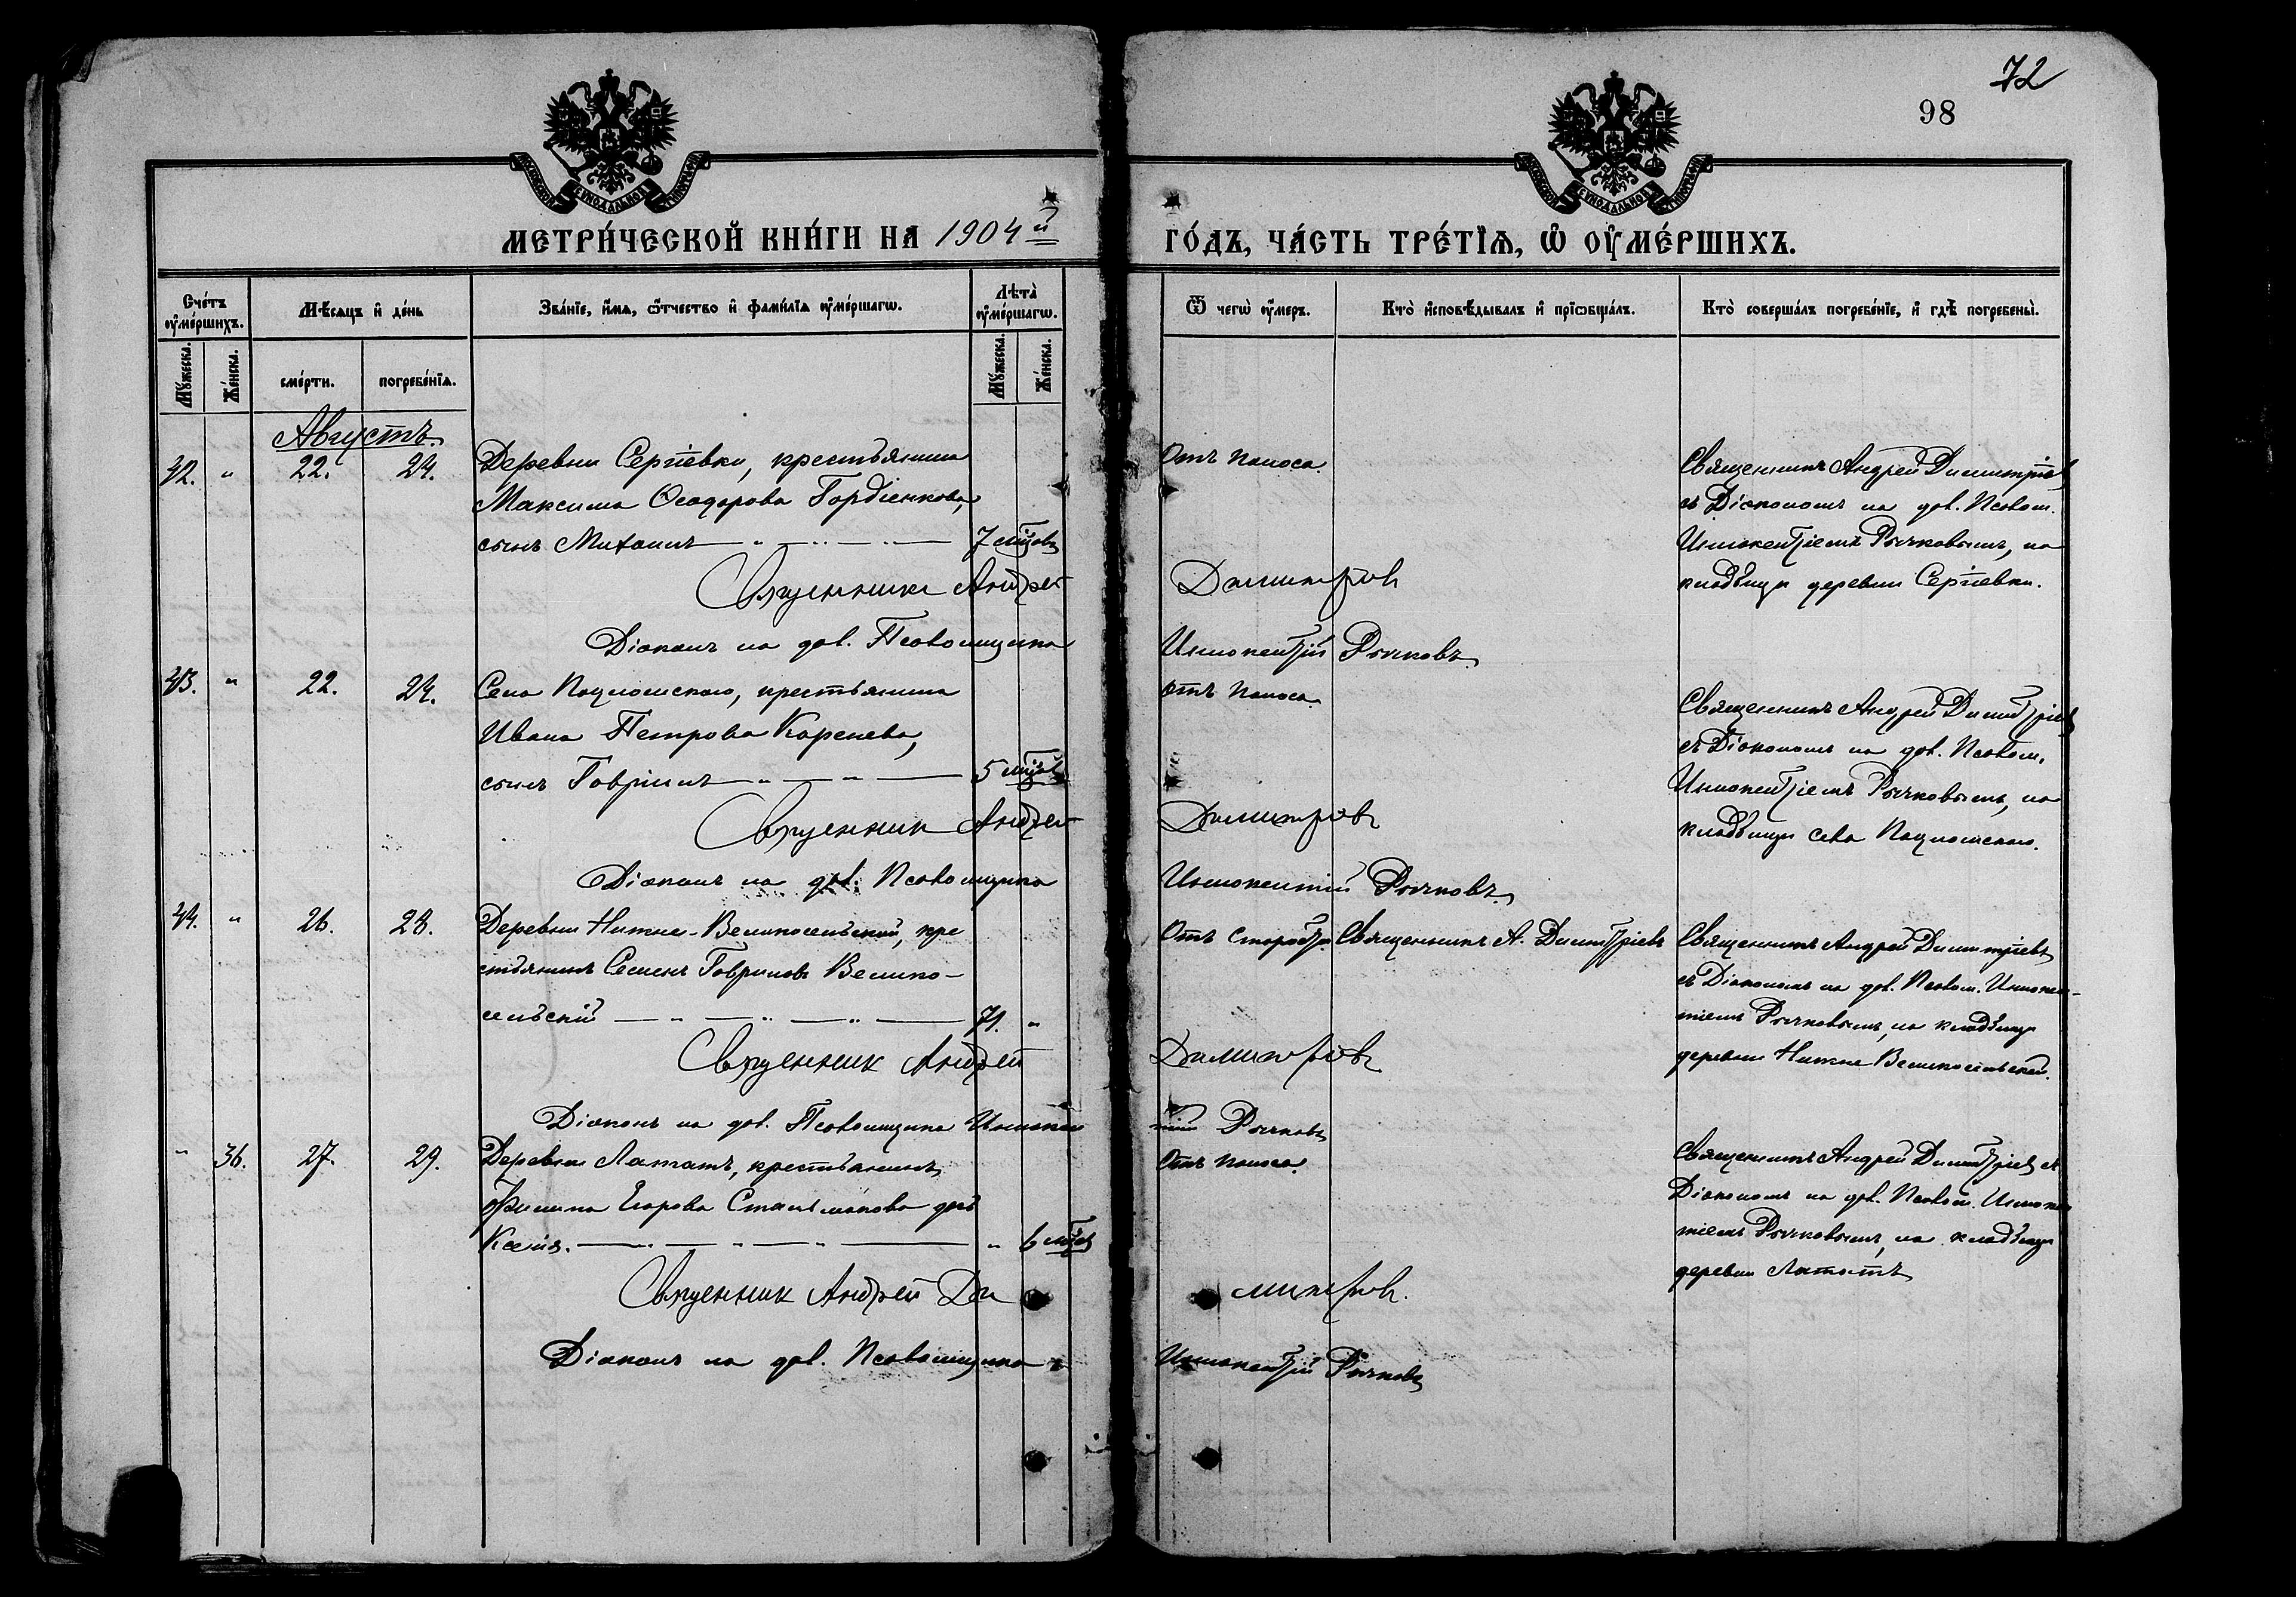 72
98
МЕТРИ́ЧЕСКОЙ КНИ́ГИ НА 1904й
ГО́ДЪ, ЧА́СТЬ ТРЕ́ТІѦ, Ѽ ОУ҆МЕ́РШИХЪ.
Сче́тъ оу҆ме́ршихъ.
Мѣ́сяцъ и҆ де́нь
Зва́ніе, и҆́мѧ, ѻ҆́тчество и҆ фами́лїѧ оу҆ме́ршагѡ.
Лѣ̀та оу҆ме́ршагѡ.
Ѿ чегѡ̀ оу҆́меръ.
Кто̀ и҆сповѣ́дывалъ и҆ прїѻбща́лъ.
Кто̀ соверша́лъ погребе́нїе, и҆ гдѣ̀ погребены̀.
Мꙋ́жеска.
Же́нска.
сме́рти.
погребе́нїѧ.
Мꙋ́жеска.
Же́нска.
Августъ.
42. " 22. 24. Деревни Сергіевки, крестьянина
Максима Ѳеодорова Гордіенкова,
сынъ Михаилъ 7 мцовъ
Отъ поноса.
Священникъ Андрей Димитріевъ
съ Діакономъ на дол. Псалом.
Иннокентіемъ Рычковымъ, на
кладбищѣ деревни Сергіевки.
Священникъ Андрей Димитріевъ
Діаконъ на дол. Псаломщика Иннокентій Рычковъ.
43. " 22. 24. Села , крестьянина
Ивана Петрова Коренева,
сынъ Гавріилъ 5 мцовъ
отъ поноса.
Священникъ Андрей Димитріевъ
съ Діакономъ на дол. Псалом.
Иннокентіемъ Рычковымъ, на
кладбищѣ села
Священникъ Андрей Димитріевъ
Діаконъ на дол. Псаломщика Иннокентій Рычковъ.
44. " 26. 28. Деревни Нижне-Великосельской, кре
стьянинъ Семенъ Гавриловъ Велико-
сельскій 71. "
Отъ старости. Священникъ А. Димитріевъ
Священникъ Андрей Димитріевъ
съ Діакономъ на дол. Псалом. Иннокен-
тіемъ Рычковымъ, на кладбищѣ
деревни Нижне Великосельской.
Священникъ Андрей Димитріевъ
Діаконъ на дол. Псаломщика Иннокентій Рычковъ
" 36. 27. 29. Деревни Лататъ, крестьянина
Филиппа Егорова дочь
Ксенія. " 6 мцовъ
Отъ поноса.
Священникъ Андрей Димитріевъ съ
Діакономъ на дол. Псалом. Иннокен
тіемъ Рычковымъ, на кладбищѣ
деревни Лататъ
Священникъ Андрей Димитріевъ.
Діаконъ на дол. Псаломщика Иннокентій Рычковъ